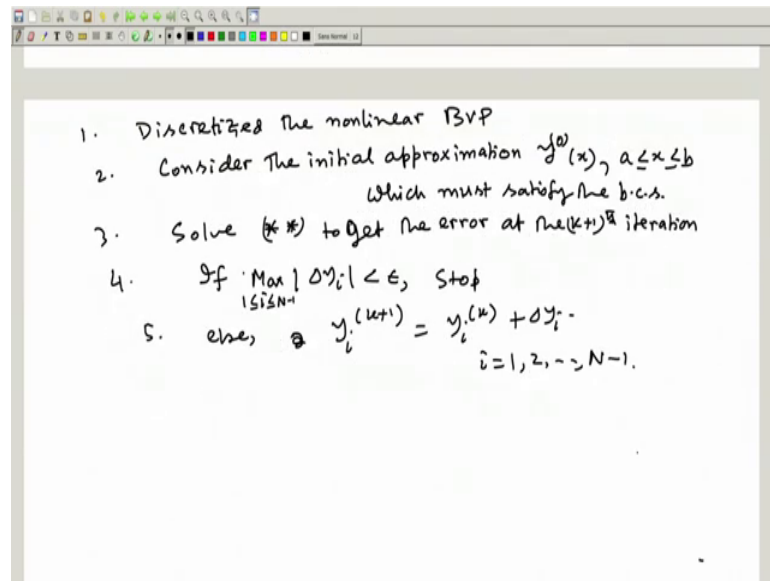 Sans Normal 12
1. Discretized the nonlinear BVP
2. Consider The initial approximation y⁽⁰⁾(x), a≤x≤b
which must satisfy the b.c.s.
3. Solve (**) to get the error at the (k+1)th iteration
4. If Max | Δyᵢ| < ε, stop
1≤i≤N-1
5. else, yᵢ⁽ᵏ⁺¹⁾ = yᵢ⁽ᵏ⁾ + Δyᵢ.
i = 1, 2, --, N-1.